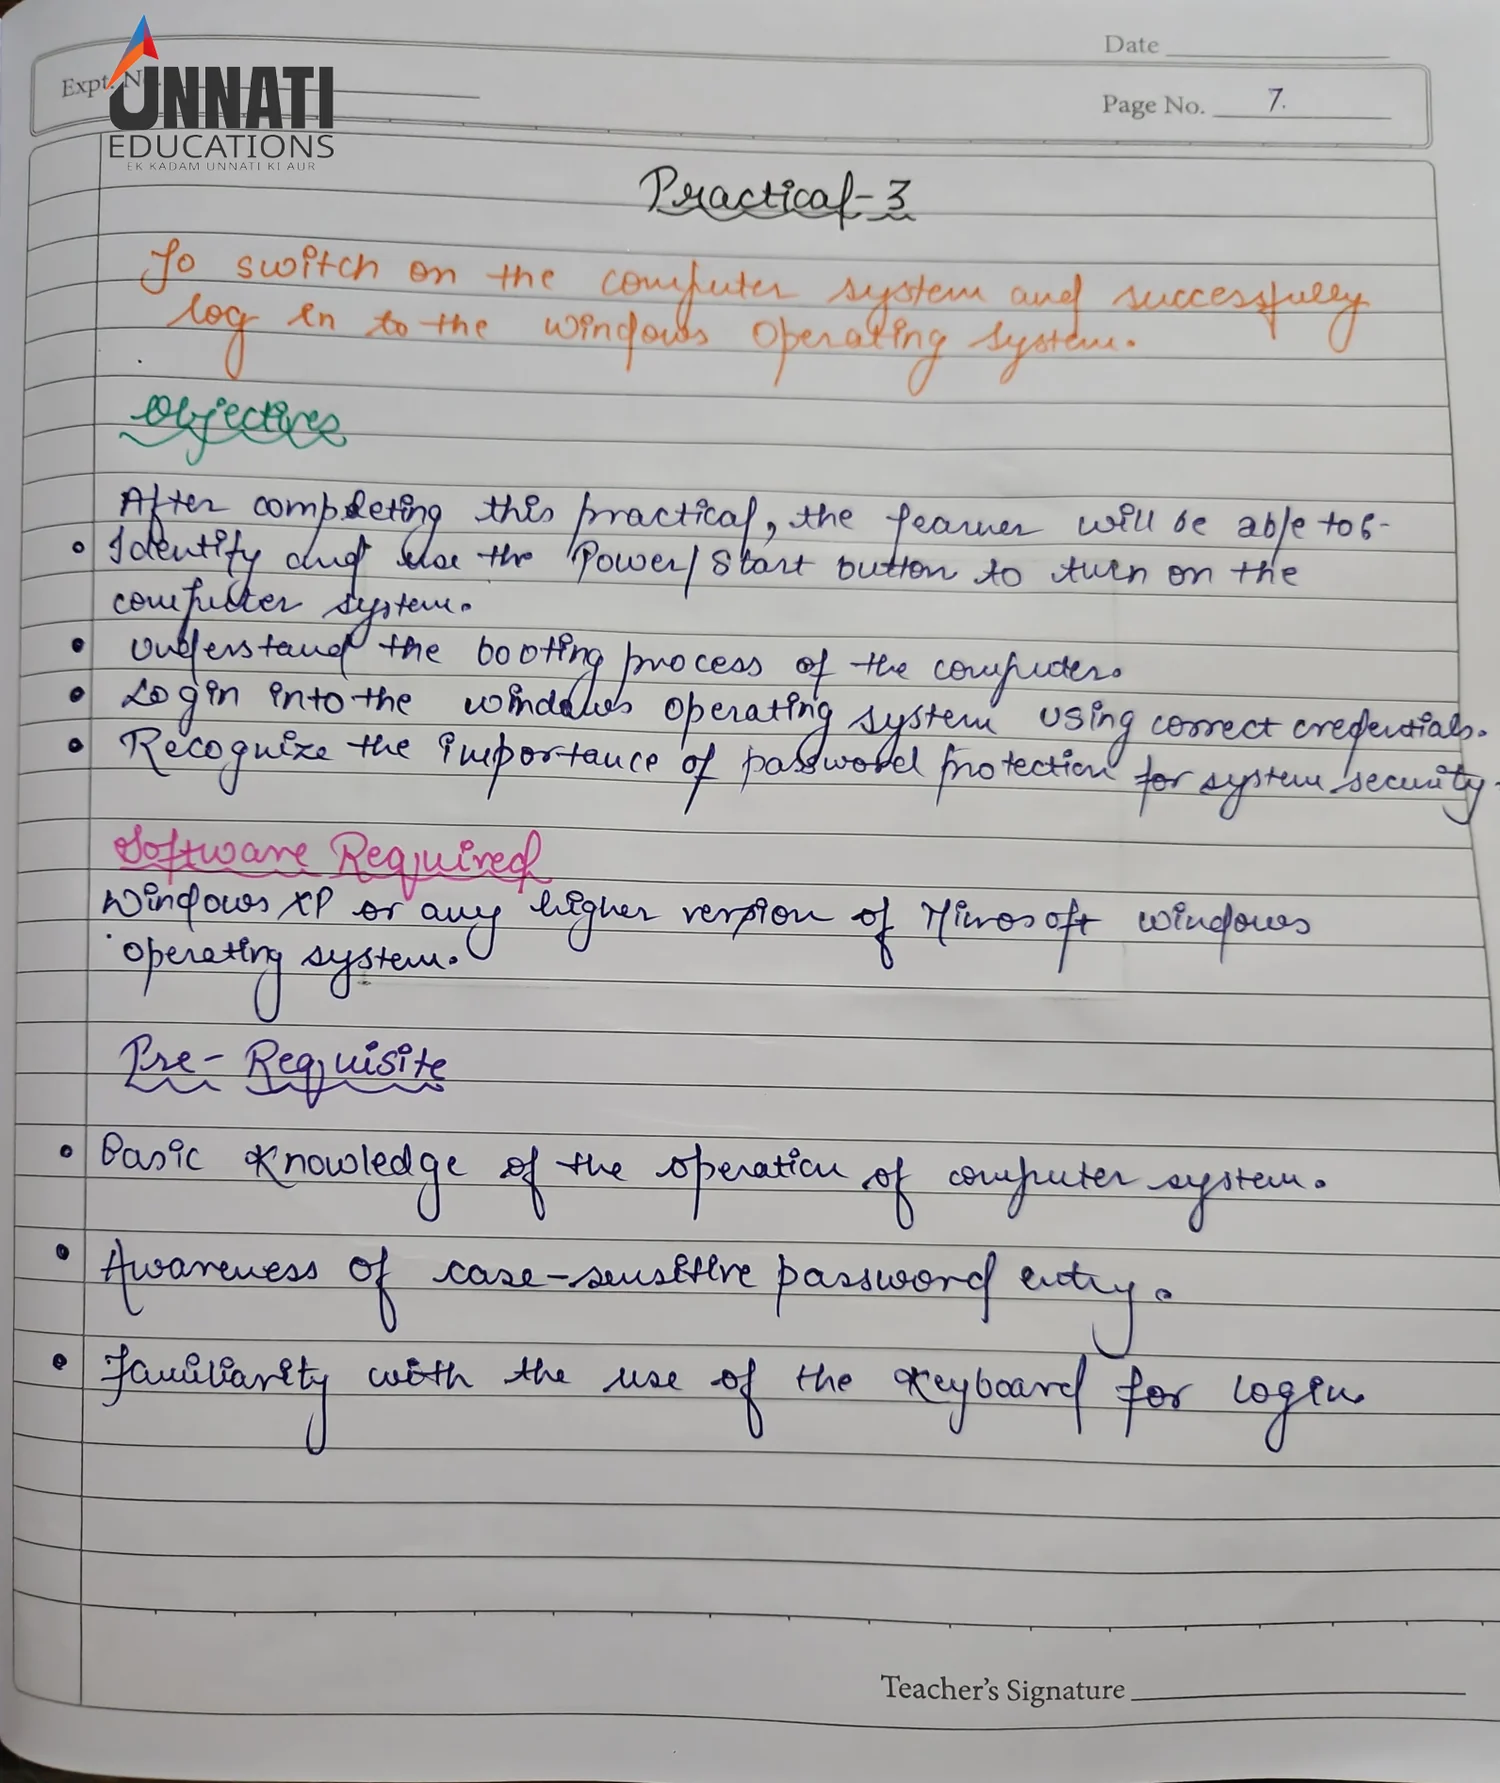 Date
Expt. N
UNNATI
EDUCATIONS
EK KADAM UNNATI KI AUR
Page No. 7.
Practical-3
To switch on the computer system and successfully
log in to the windows operating system.
Objectives
After completing this practical, the learner will be able to:-
• Identify and use the Power/Start button to turn on the
computer system.
• Understand the booting process of the computer.
• Login into the windows operating system using correct credentials.
• Recognize the importance of password protection for system security.
Software Required
Windows XP or any higher version of Mirosoft windows
operating system.
Pre-Requisite
• Basic Knowledge of the operation of computer system.
• Awareness of case-sensitive password entry.
• Familiarity with the use of the Keyboard for login.
Teacher's Signature